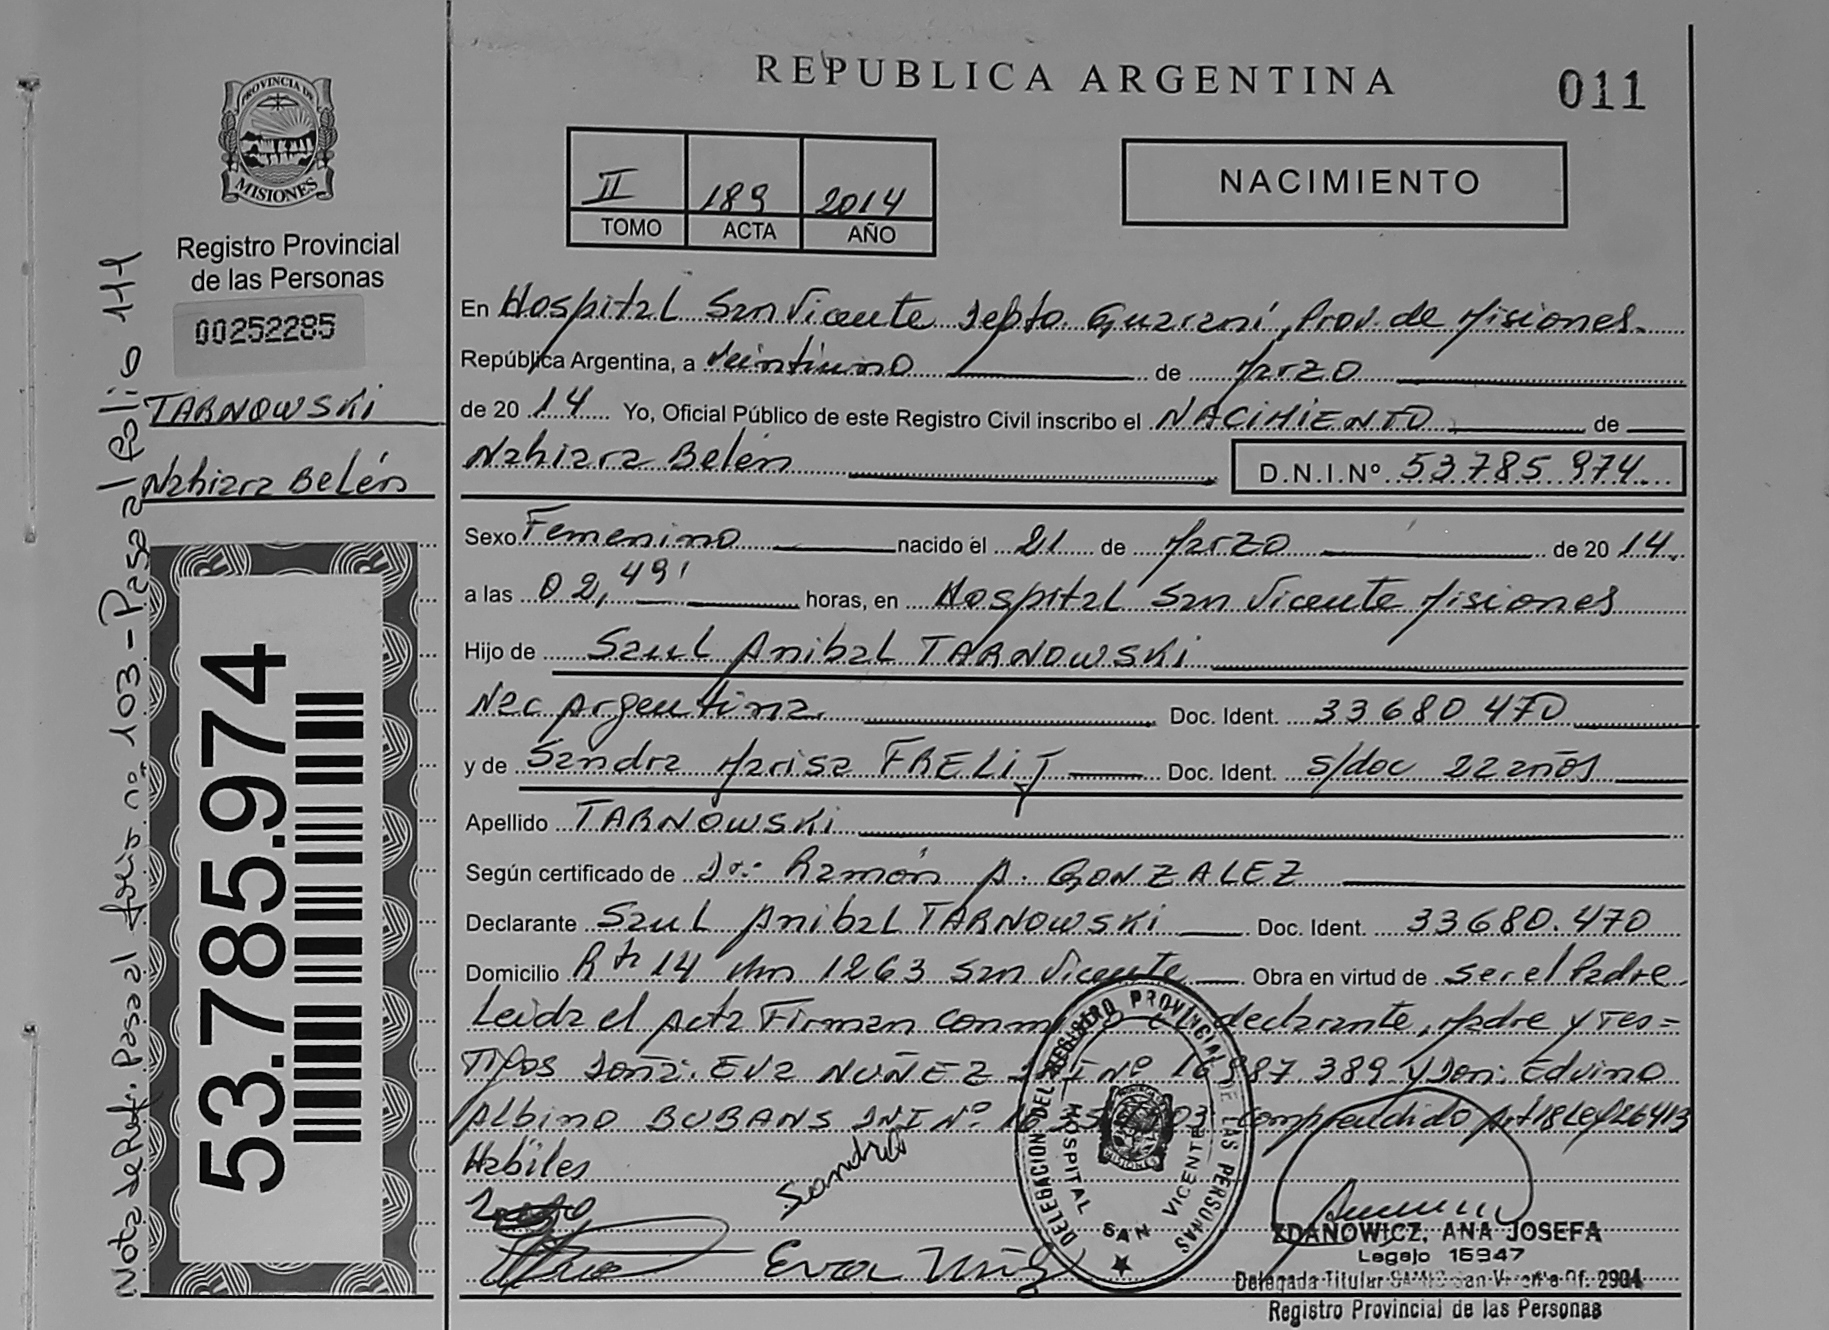 REPUBLICA ARGENTINA
011
PROVINCIA DE
MISIONES
Registro Provincial
de las Personas
00252285
TARNOWSKI
Nahiara Belén
53.785.974
Nota de Ref. Pasa al frus. nº 103 - Pasa al Folio 144
II 189 2014
TOMO ACTA AÑO
NACIMIENTO
En Hospital San Vicente Depto. Guaraní, Prov. de Misiones.
República Argentina, a veintiuno de Marzo
de 20 14 Yo, Oficial Público de este Registro Civil inscribo el NACIMIENTO de
Nahiara Belén D.N.I.Nº 53.785.974
Sexo Femenino nacido el 21 de Marzo de 20 14
a las 02,49' horas, en Hospital San Vicente Misiones
Hijo de Saul Anibal TARNOWSKI
Nac Argentina. Doc. Ident. 33680470
y de Sandra Marisa FRELIJ Doc. Ident. s/doc 22 años
Apellido TARNOWSKI
Según certificado de Dr: Ramón A. GONZALEZ
Declarante Saul Anibal TARNOWSKI Doc. Ident. 33680.470
Domicilio Rta 14 Km 1263 San Vicente Obra en virtud de ser el Padre
Leida el Acta Firman conmigo el declarante, Madre y tes=
tigos Doña: Eva NUÑEZ DNI Nº 16 887.389 y Don: Edvino
Albino BUBANS DNI Nº comprendido Art 18 Ley 26413
Habiles
Sandra
Eva Nuñez
DELEGACION DEL REGISTRO PROVINCIAL DE LAS PERSONAS
HOSPITAL SAN VICENTE
MISIONES
ZDANOWICZ, ANA JOSEFA
Legajo 15947
Delegada Titular SAMIC San Vicente Of. 2904
Registro Provincial de las Personas